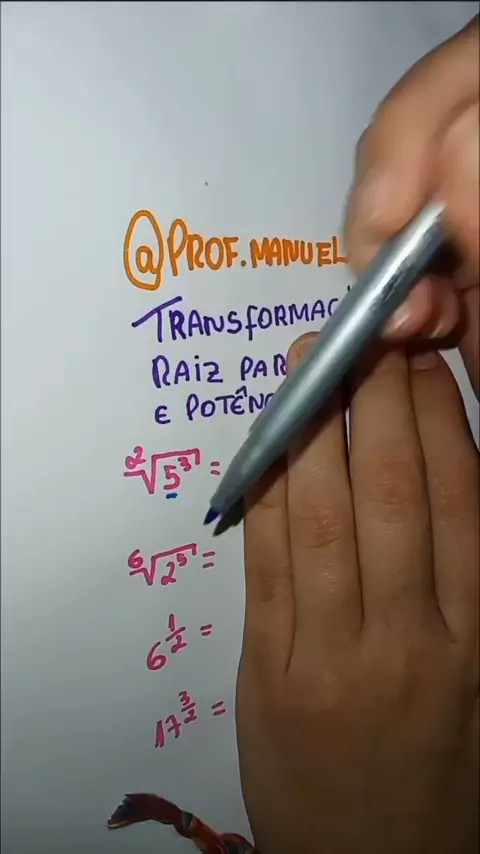 @PROF.MANUEL
TRANSFORMAÇ
RAIZ PAR
E POTÊNC
²√5³ =
⁶√2⁵ =
6^(1/2) =
17^(3/2) =